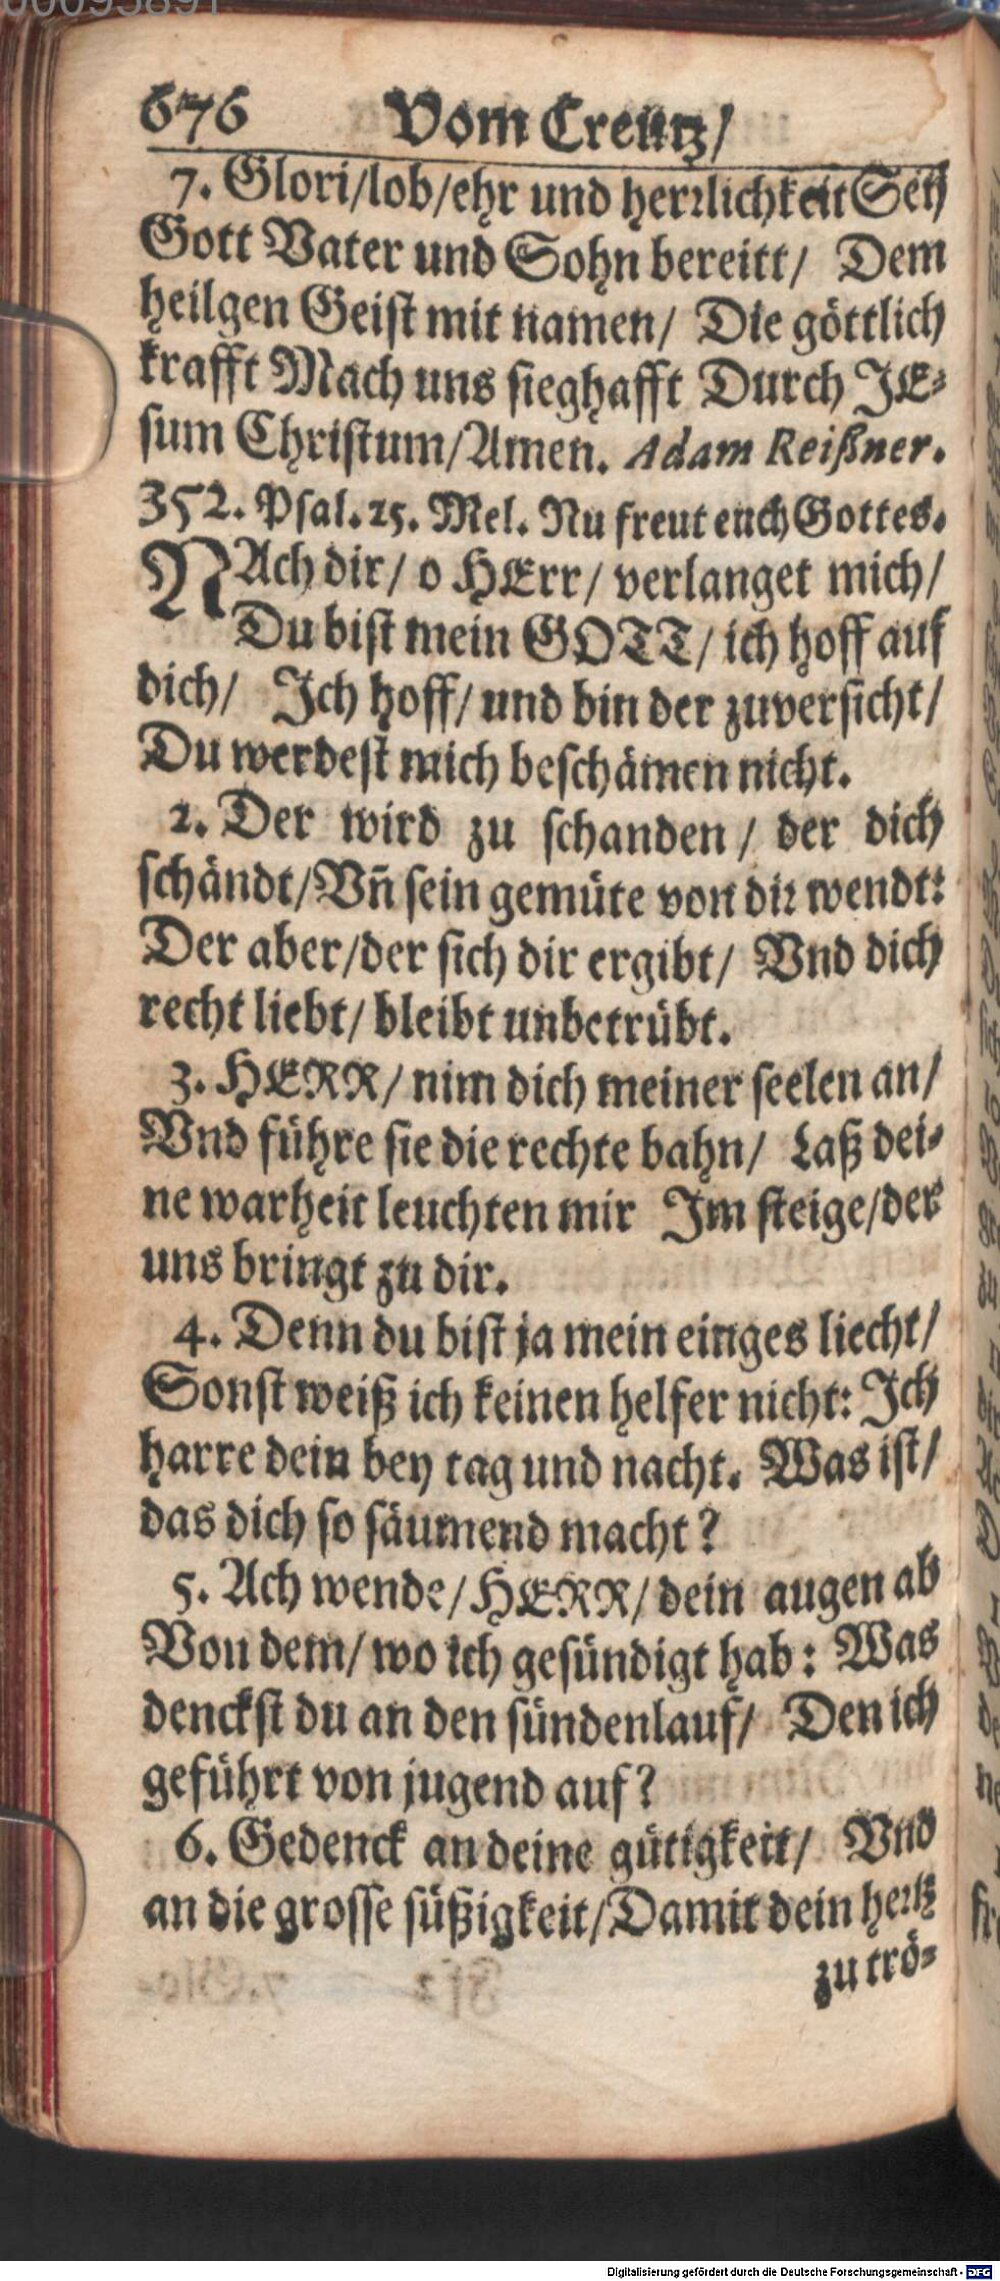 676 Vom Creutz/
7. Glori/lob/ehr und herrlichkeit Sey
Gott Vater und Sohn bereitt/ Dem
heilgen Geist mit namen/ Die göttlich
krafft Mach uns sieghafft Durch JE-
sum Christum/Amen. Adam Reißner.
352. Psal. 25. Mel. Nu freut euch Gottes.
NAch dir/ o HErr/ verlanget mich/
Du bist mein GOTT/ ich hoff auf
dich/ Ich hoff/ und bin der zuversicht/
Du werdest mich beschämen nicht.
2. Der wird zu schanden/ der dich
schändt/Vn̄ sein gemüte von dir wendt:
Der aber/der sich dir ergibt/ Vnd dich
recht liebt/ bleibt unbetrübt.
3. HERR/ nim dich meiner seelen an/
Vnd führe sie die rechte bahn/ Laß dei-
ne warheit leuchten mir Im steige/der
uns bringt zu dir.
4. Denn du bist ja mein einges liecht/
Sonst weiß ich keinen helfer nicht: Ich
harre dein bey tag und nacht. Was ist/
das dich so säumend macht?
5. Ach wende/HERR/ dein augen ab
Von dem/ wo ich gesündigt hab: Was
denckst du an den sündenlauf/ Den ich
geführt von jugend auf?
6. Gedenck an deine gütigkeit/ Vnd
an die grosse süßigkeit/Damit dein hertz
zu trö-
Digitalisierung gefördert durch die Deutsche Forschungsgemeinschaft - DFG